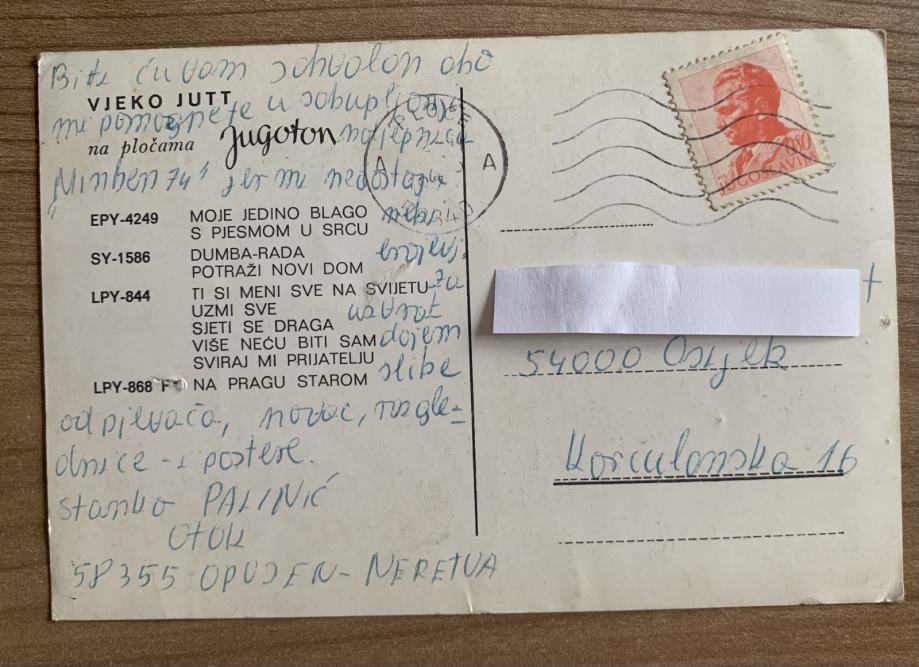 Biti ću vam zahvalan ako
VJEKO JUTT
mi pomognete u sakupljanju
na pločama Jugoton naljepnica
"Minhen 74" jer mi nedostaje
EPY-4249 MOJE JEDINO BLAGO neki
S PJESMOM U SRCU
SY-1586 DUMBA-RADA brojevi.
POTRAŽI NOVI DOM
LPY-844 TI SI MENI SVE NA SVIJETU Za
UZMI SVE uzvrat
SJETI SE DRAGA
VIŠE NEĆU BITI SAM dajem
SVIRAJ MI PRIJATELJU
LPY-868 NA PRAGU STAROM slike
od pjevača, novac, razgle-
dnice - i postere.
Stanko PALINIĆ
OTOK
58355 OPUZEN - NERETVA
PLOČE
A A
0.80
JUGOSLAVIJA
54000 Osijek
Korčulanska 16